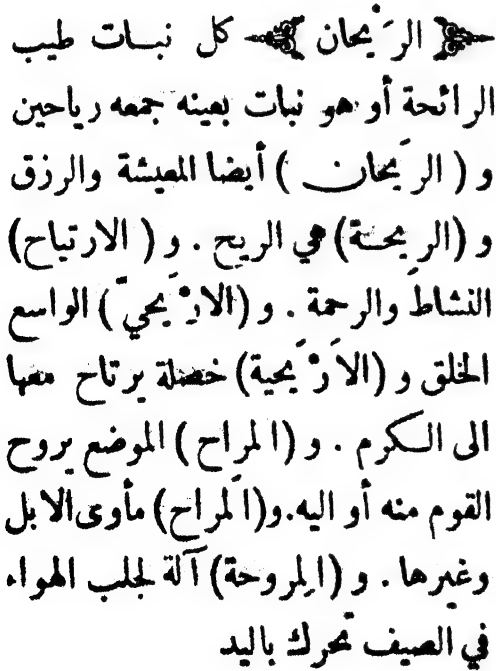 ﴿ الرَيْحان ﴾ كل نبات طيب
الرائحة أو هو نبات بعينه جمعه رياحين
و ( الرَيحان ) أيضا المعيشة والرزق
و (الريحـنة) هي الريح . و ( الارتياح)
النشاط والرحمة . و (الارْيَحيّ ) الواسع
الخلق و (الاَرْيَحية) خصلة يرتاح معها
الى الكرم . و (المراح ) الموضع يروح
القوم منه أو اليه.و(المَراح) مأوى الابل
وغيرها . و (المِروحة) آلة لجلب الهواء
في الصيف تحرك باليد